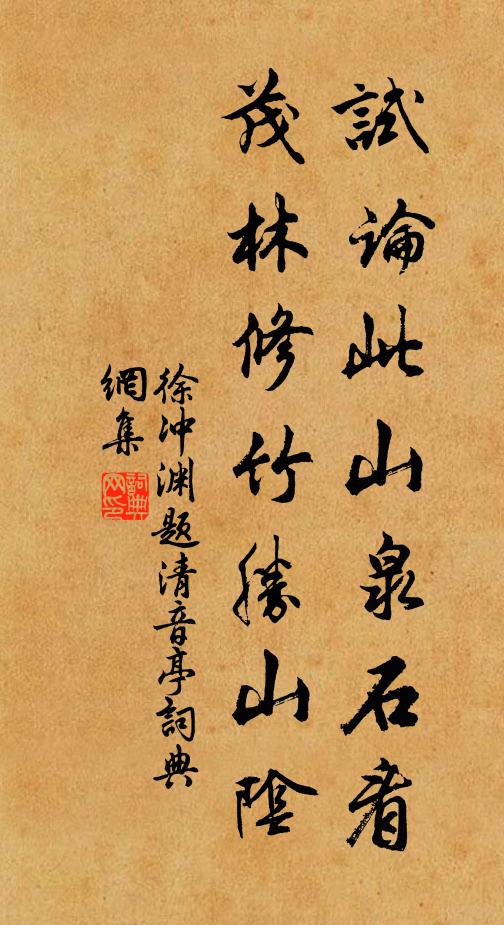 試論此山泉石者
茂林修竹勝山陰
徐沖淵题清音亭詞典
網集
詞典
网印